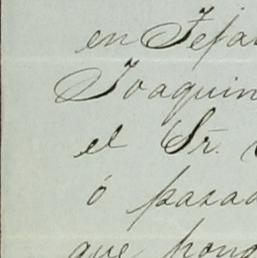 en Tefa
Joaquin
el Sr.
ó pasad
que pong